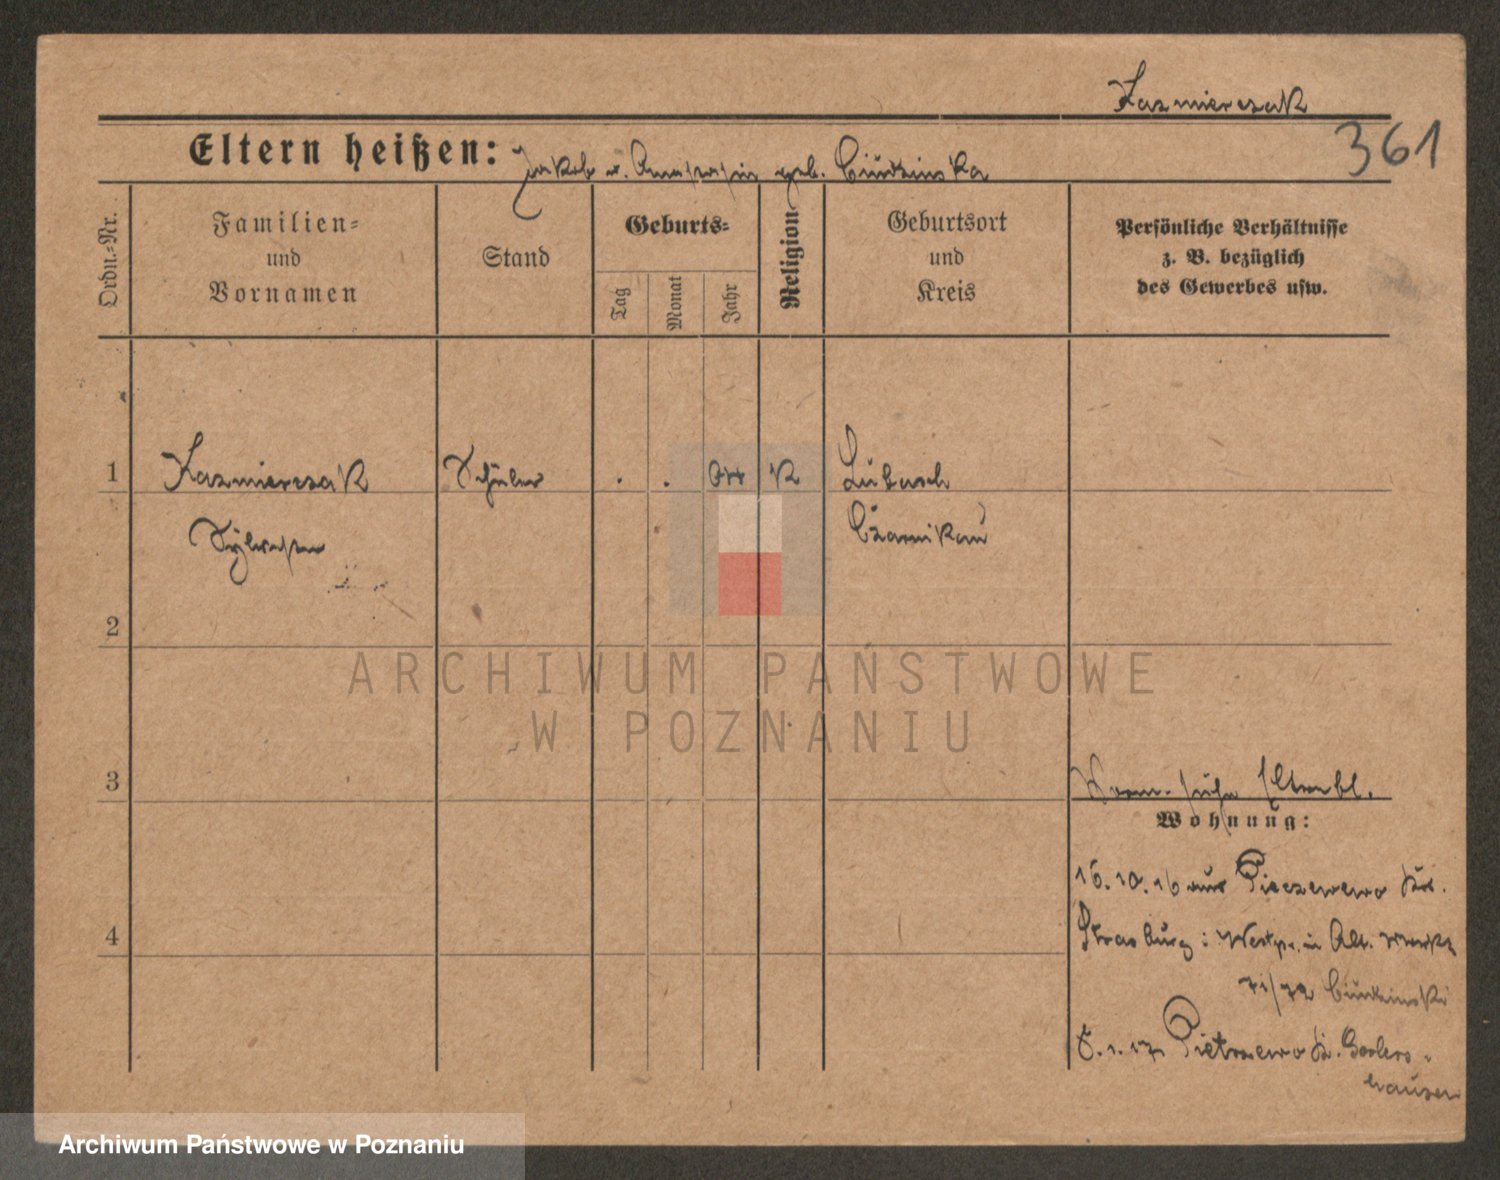 Kazmierczak
361
Eltern heißen: Jakob u. Anastasia geb.
Ordn.-Nr.
Familien-
und
Vornamen
Stand
Geburts-
Tag
Monat
Jahr
Religion
Geburtsort
und
Kreis
Persönliche Verhältnisse
z. B. bezüglich
des Gewerbes usw.
1
Kazmierczak Schüler . . K Lubasch
Sylvester Czarnikau
2
ARCHIWUM PAŃSTWOWE
W POZNANIU
3
siehe
Wohnung:
16.10.16 aus
4
Strasburg i. Westpr. in Alt. Markt
71/72
17 Pietrzewo Goslers-
hausen
Archiwum Państwowe w Poznaniu